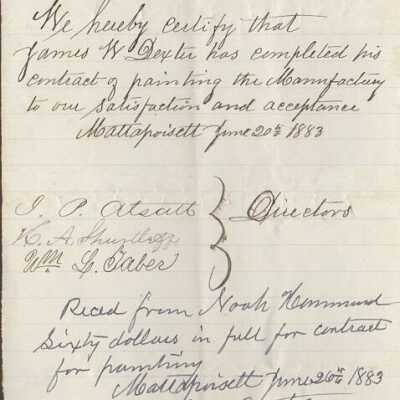 We hereby certify that
James W Dexter has completed his
contract of painting the Manufactory
to our satisfaction and acceptance
Mattapoisett June 20th 1883
J. P. Atsatt
Directors
K. A. Shurtleff
Wm L. Faber
Recd from Noah Hammond
Sixty dollars in full for contract
for painting
Mattapoisett June 26th 1883